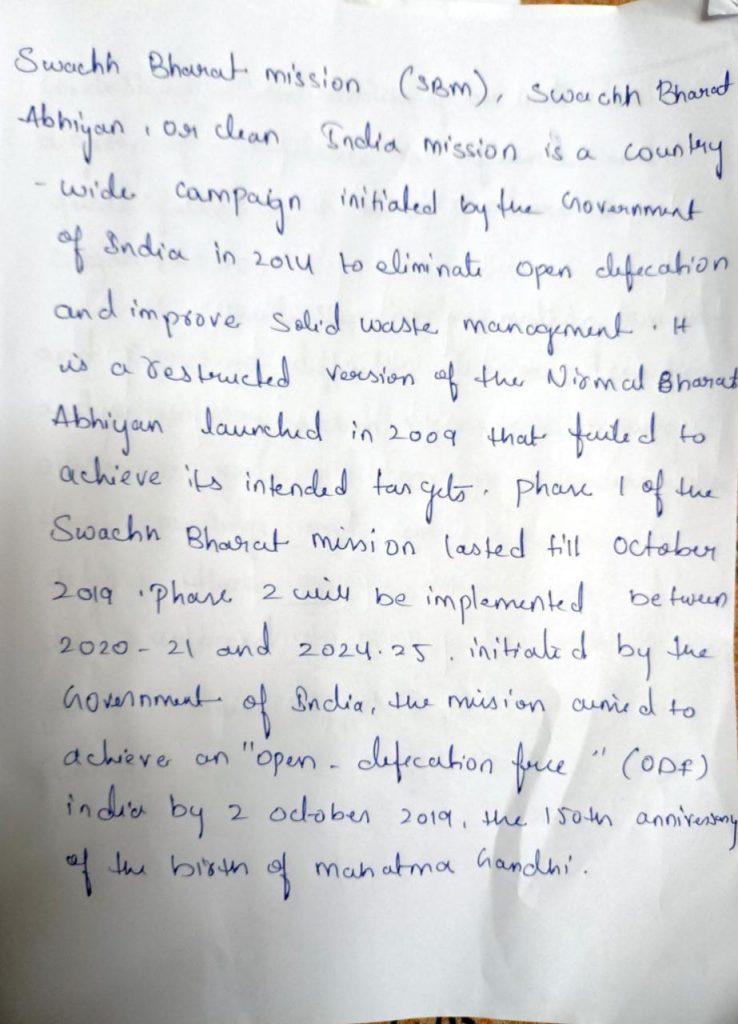 Swachh Bharat mission (SBM), Swachh Bharat
Abhiyan, or clean India mission is a country
- wide campaign initiated by the Government
of India in 2014 to eliminate open defecation
and improve solid waste management. It
is a restructed version of the Nirmal Bharat
Abhiyan launched in 2009 that failed to
achieve its intended targets. phase 1 of the
Swachh Bharat mission lasted till october
2019. Phase 2 will be implemented between
2020-21 and 2024.25. initiated by the
Government of India, the mission aimed to
achieve an "open-defecation free" (ODF)
india by 2 october 2019, the 150th anniversary
of the birth of mahatma Gandhi.